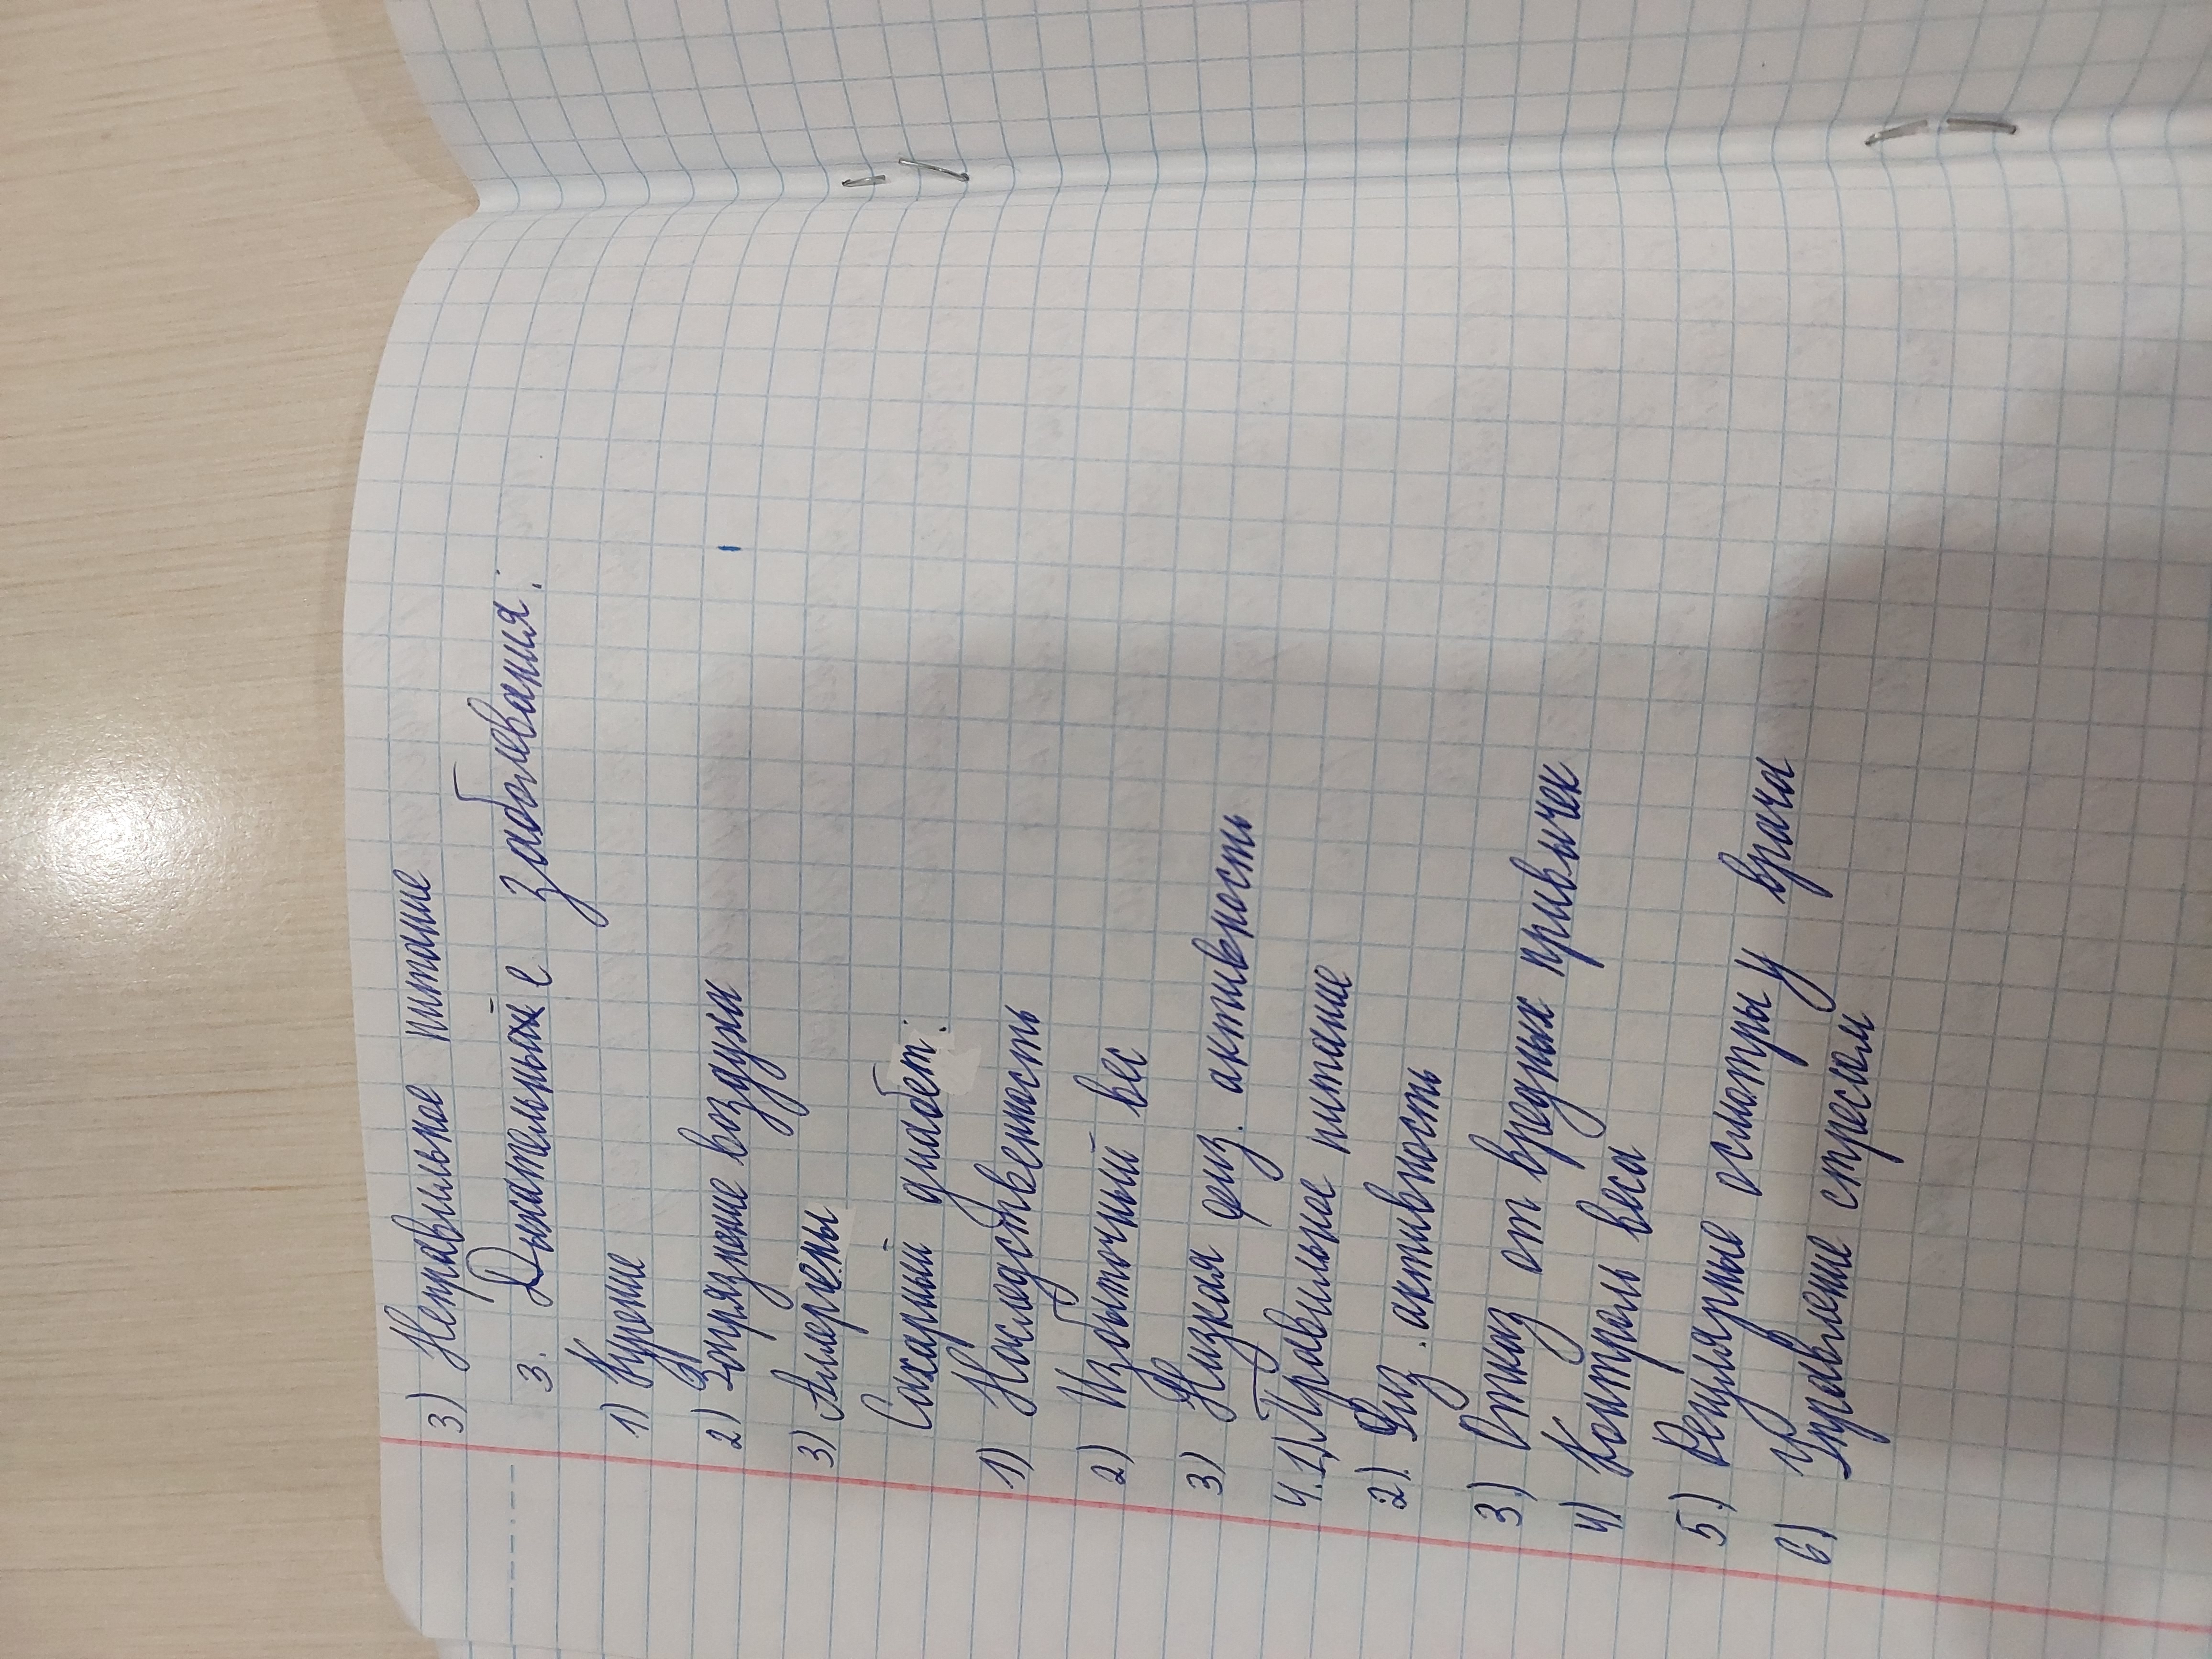 3) Неправильное питание
3. Дыхательные заболевания:
1) Курение
2) Загрязнение воздуха
3) Аллергены
Сахарный диабет:
1) Наследственность
2) Избыточный вес
3) Низкая физ. активность
4.1) Правильное питание
2) Физ. активность
3) Отказ от вредных привычек
4) Контроль веса
5) Регулярные осмотры у врача
6) Управление стресом